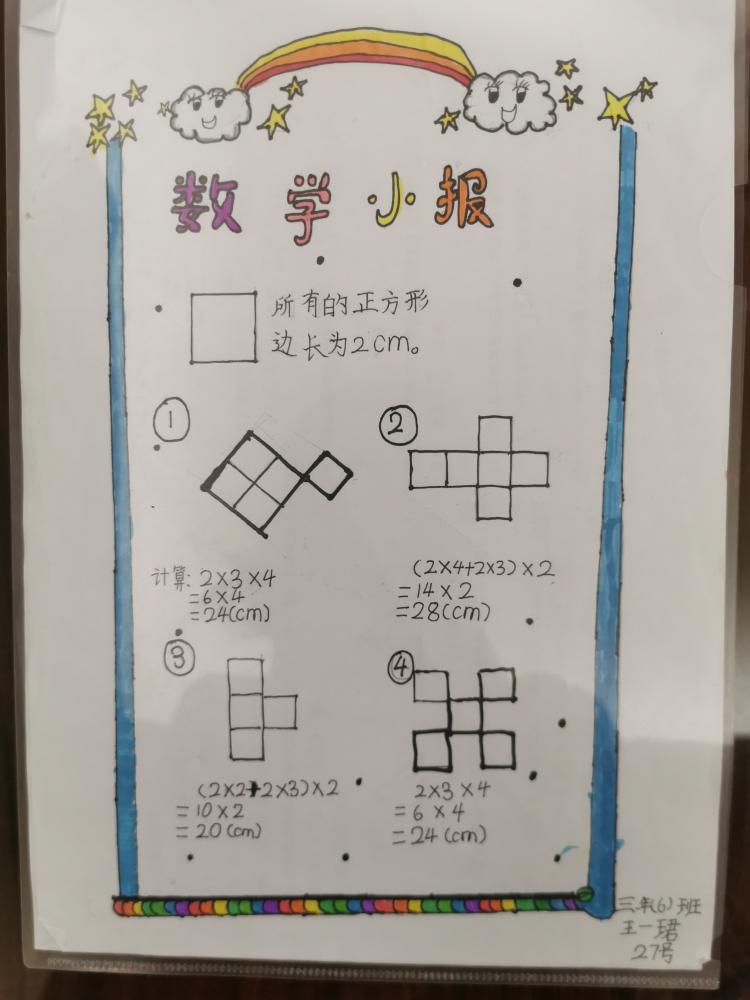 数学小报
所有的正方形
边长为2cm。
①
②
计算: 2×3×4
=6×4
=24(cm)
(2×4+2×3)×2
=14×2
=28(cm)
③
④
(2×2+2×3)×2
=10×2
=20(cm)
2×3×4
=6×4
=24(cm)
三.年(6)班
王一珺
27号